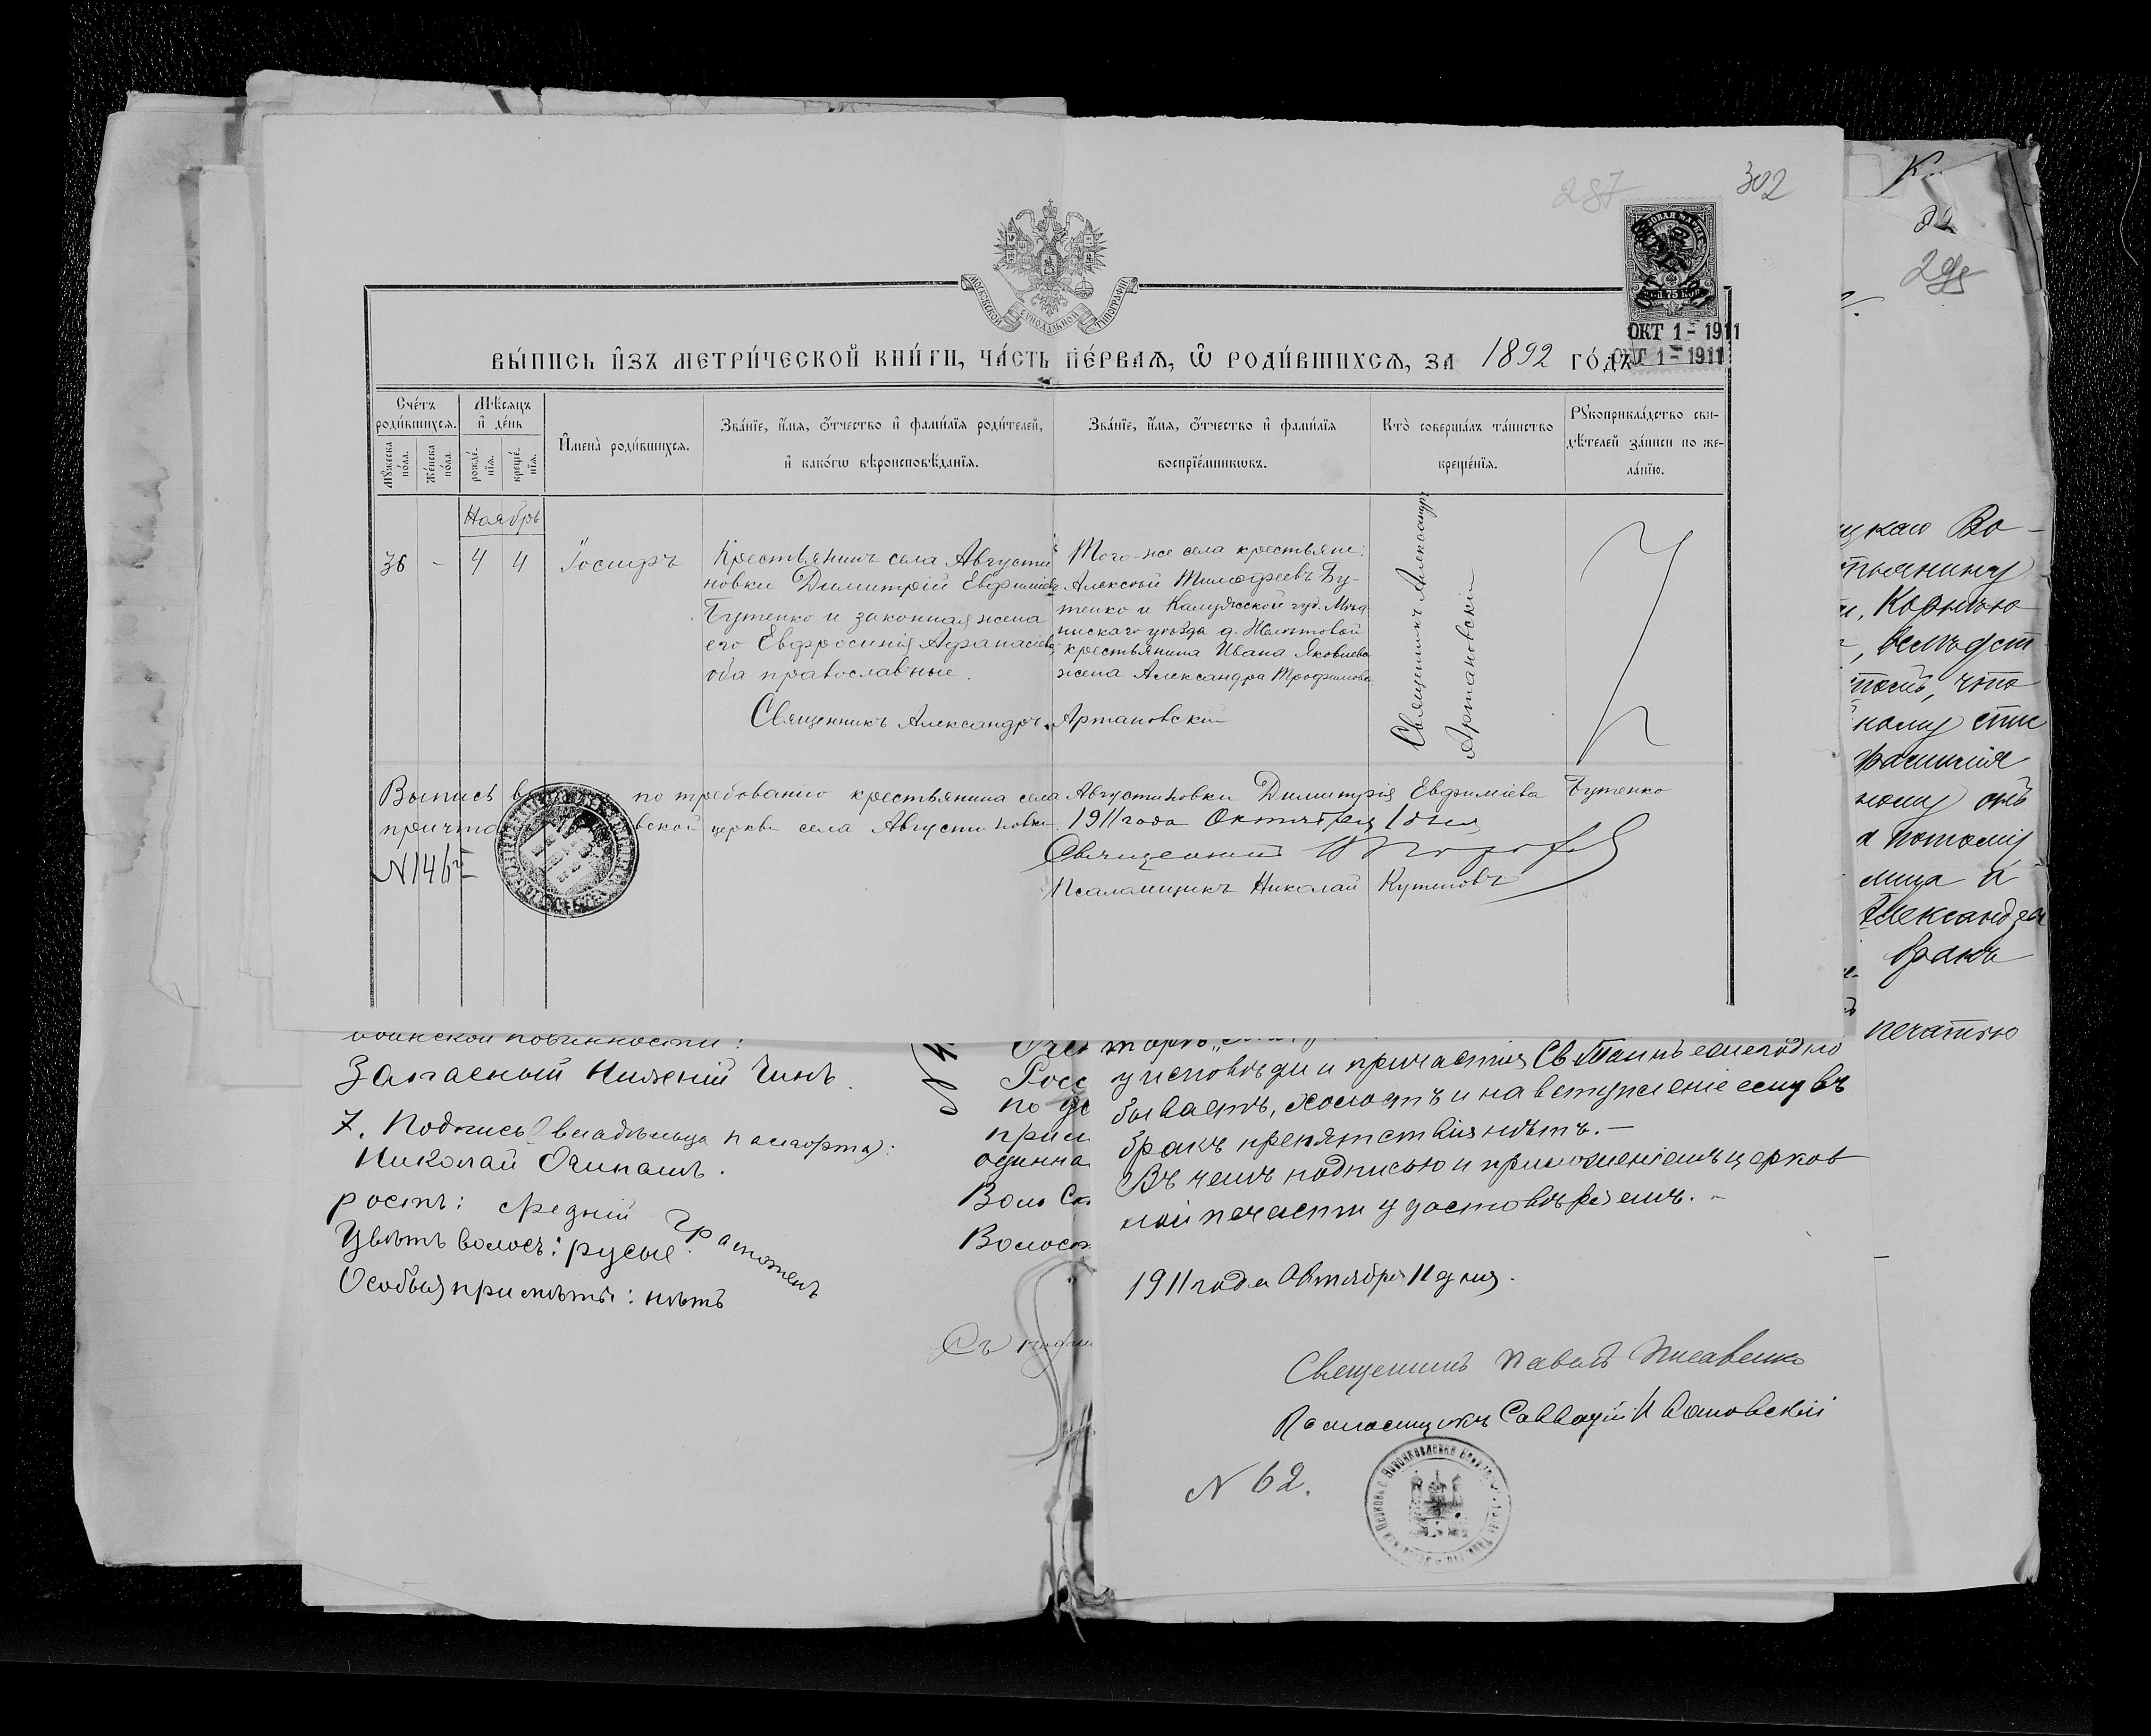 287
302
МОСКОВСКОЙ СѴНОДАЛЬНОЙ ТИПОГРАФІИ
75 КОП
ОКТ 1 - 1911
ОКТ 1 - 1911
ВЫ́ПИСЬ И҆ЗЪ МЕТРИ́ЧЕСКОЙ КНИ́ГИ, ЧА́СТЬ ПЕ́РВАѦ, Ѡ҆ РОДИ́ВШИХСѦ, ЗА 1892 ГО́ДЪ
Сче́тъ роди́вшихсѧ.
Мꙋ́жеска по́ла.
Же́нска по́ла.
Мѣ́сѧцъ и҆ де́нь
рожде́нїѧ.
креще́нїѧ.
И҆мена̀ роди́вшихсѧ.
Зва́нїе, и҆́мѧ, ѻ҆́тчество и҆ фами́лїѧ роди́телей,
и҆ како́гѡ вѣроисповѣ́данїѧ.
Зва́нїе, и҆́мѧ, ѻ҆́тчество и҆ фами́лїѧ
воспрїе́мникѡвъ.
Кто̀ соверша́лъ та́инство
креще́нїѧ.
Рꙋкоприкла́дство сви-
дѣ́телей за́писи по же-
ла́нїю.
Ноябрь
36 - 4 4 Іосифъ
Крестьянинъ села Августи
новки Димитрій Евфиміевъ
Бутенко и законная жена
его Евфросинія Афанасіева
оба православные.
Того-же села крестьяне:
Алексѣй Тимофеевъ Бу-
тенко и Калужской губ.
уѣзда д.
крестьянина Ивана Яковлева
жена Александра Трофимова
Священникъ Александръ
Артановскій
Священникъ Александръ Артановскій
Выпись по требованію крестьянина села Августиновки Димитрія Евфиміева Бутенко
причта вской церкви села Августиновки 1911 года Октября 1 дня
№ 146
Священникъ
Псаломщикъ Николай Кутеповъ
воинской повинности:
Запасный Нижній Чинъ.
7. Подпись (владѣльца паспорта):
Николай
ростъ: средній
Цвѣтъ волосъ: русые
Особыя примѣты: нѣтъ
Росс
по
оцинна
Волост
Съ
у исповѣди и причастія Св Таинъ ежегодно
бываетъ, холостъ и на вступленіе ему въ
бракъ препятствія нѣтъ. —
Въ чемъ подписью и приложеніемъ церков
ной печати удостовѣряемъ. -
1911 года Октября 11 дня.
Священникъ Павелъ Писаренко
Псаломщикъ Савватій Ивановскій
N 62.
цкаго Во-
тьянину
вслѣдст
что
ному спис
фамилія
ному отъ
а потому
лица и
Александра
бракъ
печатью